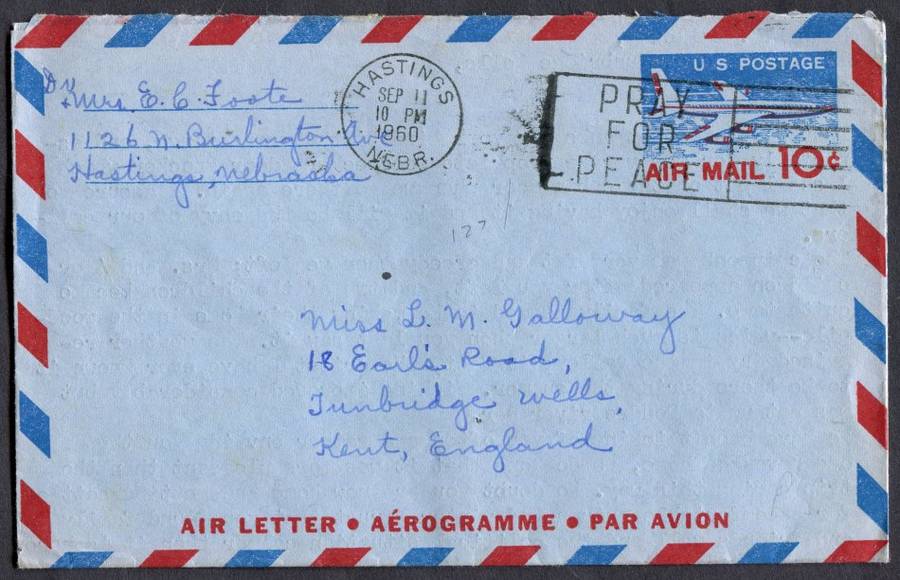 Dr + Mrs E. C. Foote
1126 N. Burlington Ave
Hastings, Nebraska
HASTINGS
SEP 11
10 PM
1960
NEBR.
PRAY
FOR
PEACE
U S POSTAGE
AIR MAIL 10¢
127
Miss L. M. Galloway
18 Earl's Road,
Tunbridge Wells,
Kent, England
AIR LETTER • AÉROGRAMME • PAR AVION